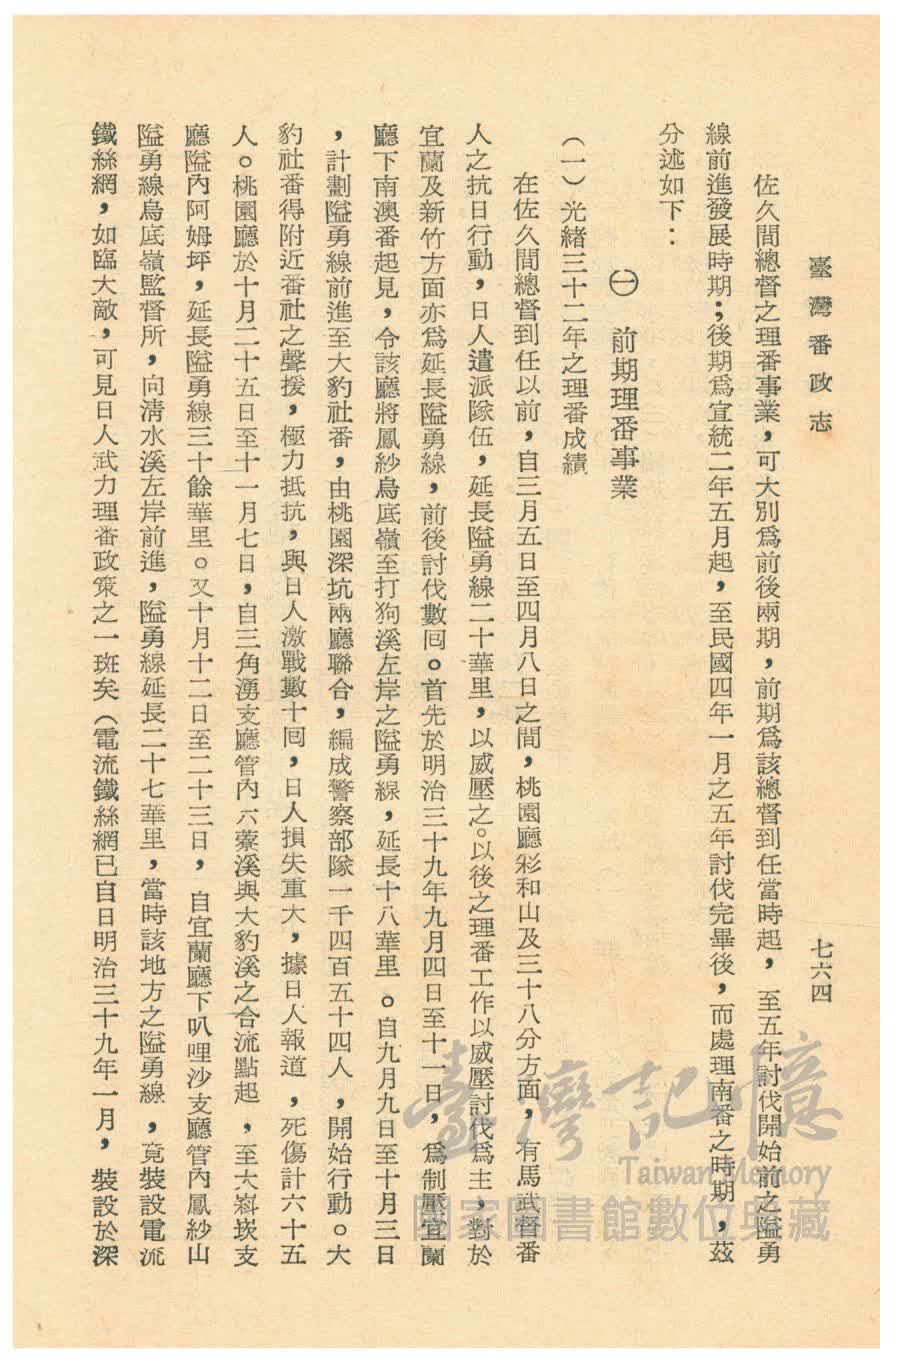 臺灣番政志
七六四
佐久間總督之理番事業，可大別爲前後兩期，前期爲該總督到任當時起，至五年討伐開始前之隘勇
線前進發展時期；後期爲宣統二年五月起，至民國四年一月之五年討伐完畢後，而處理南番之時期，茲
分述如下：
㊀　前期理番事業
（一）光緒三十二年之理番成績
在佐久間總督到任以前，自三月五日至四月八日之間，桃園廳彩和山及三十八分方面，有馬武督番
人之抗日行動，日人遣派隊伍，延長隘勇線二十華里，以威壓之。以後之理番工作以威壓討伐爲主，對於
宜蘭及新竹方面亦爲延長隘勇線，前後討伐數囘。首先於明治三十九年九月四日至十一日，爲制壓宜蘭
廳下南澳番起見，令該廳將鳳紗烏底嶺至打狗溪左岸之隘勇線，延長十八華里。自九月九日至十月三日
，計劃隘勇線前進至大豹社番，由桃園深坑兩廳聯合，編成警察部隊一千四百五十四人，開始行動。大
豹社番得附近番社之聲援，極力抵抗，與日人激戰數十囘，日人損失重大，據日人報道，死傷計六十五
人。桃園廳於十月二十五日至十一月七日，自三角湧支廳管內六藔溪與大豹溪之合流點起，至大嵙崁支
廳隘內阿姆坪，延長隘勇線三十餘華里。又十月十二日至二十三日，自宜蘭廳下叭哩沙支廳管內鳳紗山
隘勇線烏底嶺監督所，向清水溪左岸前進，隘勇線延長二十七華里，當時該地方之隘勇線，竟裝設電流
鐵絲網，如臨大敵，可見日人武力理番政策之一斑矣（電流鐵絲網已自日明治三十九年一月，裝設於深
臺灣記憶
Taiwan Memory
國家圖書館數位典藏